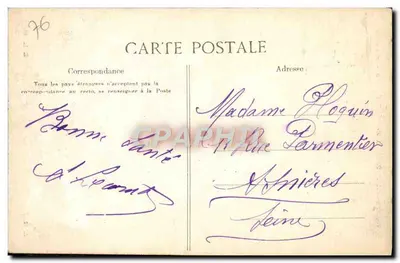 76
CARTE POSTALE
Correspondance
Tous les pays étrangers n'acceptent pas la
correspondance au recto, se renseigner à la Poste
Bonne Santé
Adresse:
Madame Hoguin
11 Rue Parmentier
Asnières
Seine